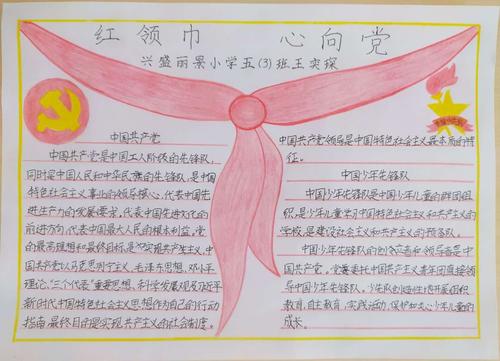 红领巾 心向党
兴盛丽景小学五(3)班王奕琛
中国共产党
中国共产党是中国工人阶级的先锋队,
同时是中国人民和中华民族的先锋队,是中国
特色社会主义事业的领导核心,代表中国先
进生产力的发展要求,代表中国先进文化的
前进方向,代表中国最大人民的根本利益,党
的最高理想和最终目标是实现共产主义,中
国共产党以马克思列宁主义、毛泽东思想、邓小平
理论、"三个代表"重要思想、科学发展观及习近平
新时代中国特色社会主义思想作为自己的行动
指南,最终目的是实现共产主义的社会制度。
中国共产党领导是中国特色社会主义最本质的特
征。
中国少年先锋队
中国少年先锋队是中国少年儿童的群团组
织,是少年儿童学习中国特色社会主义和共产主义的
学校,是建设社会主义和共产主义的预备队。
中国少年先锋队的创立者和领导者是中
国共产党,党委托中国共产主义青年团直接领
导中国少年先锋队。少先队创造性地开展组织
教育、自主教育、实践活动,保护和关心少年儿童的
成长。